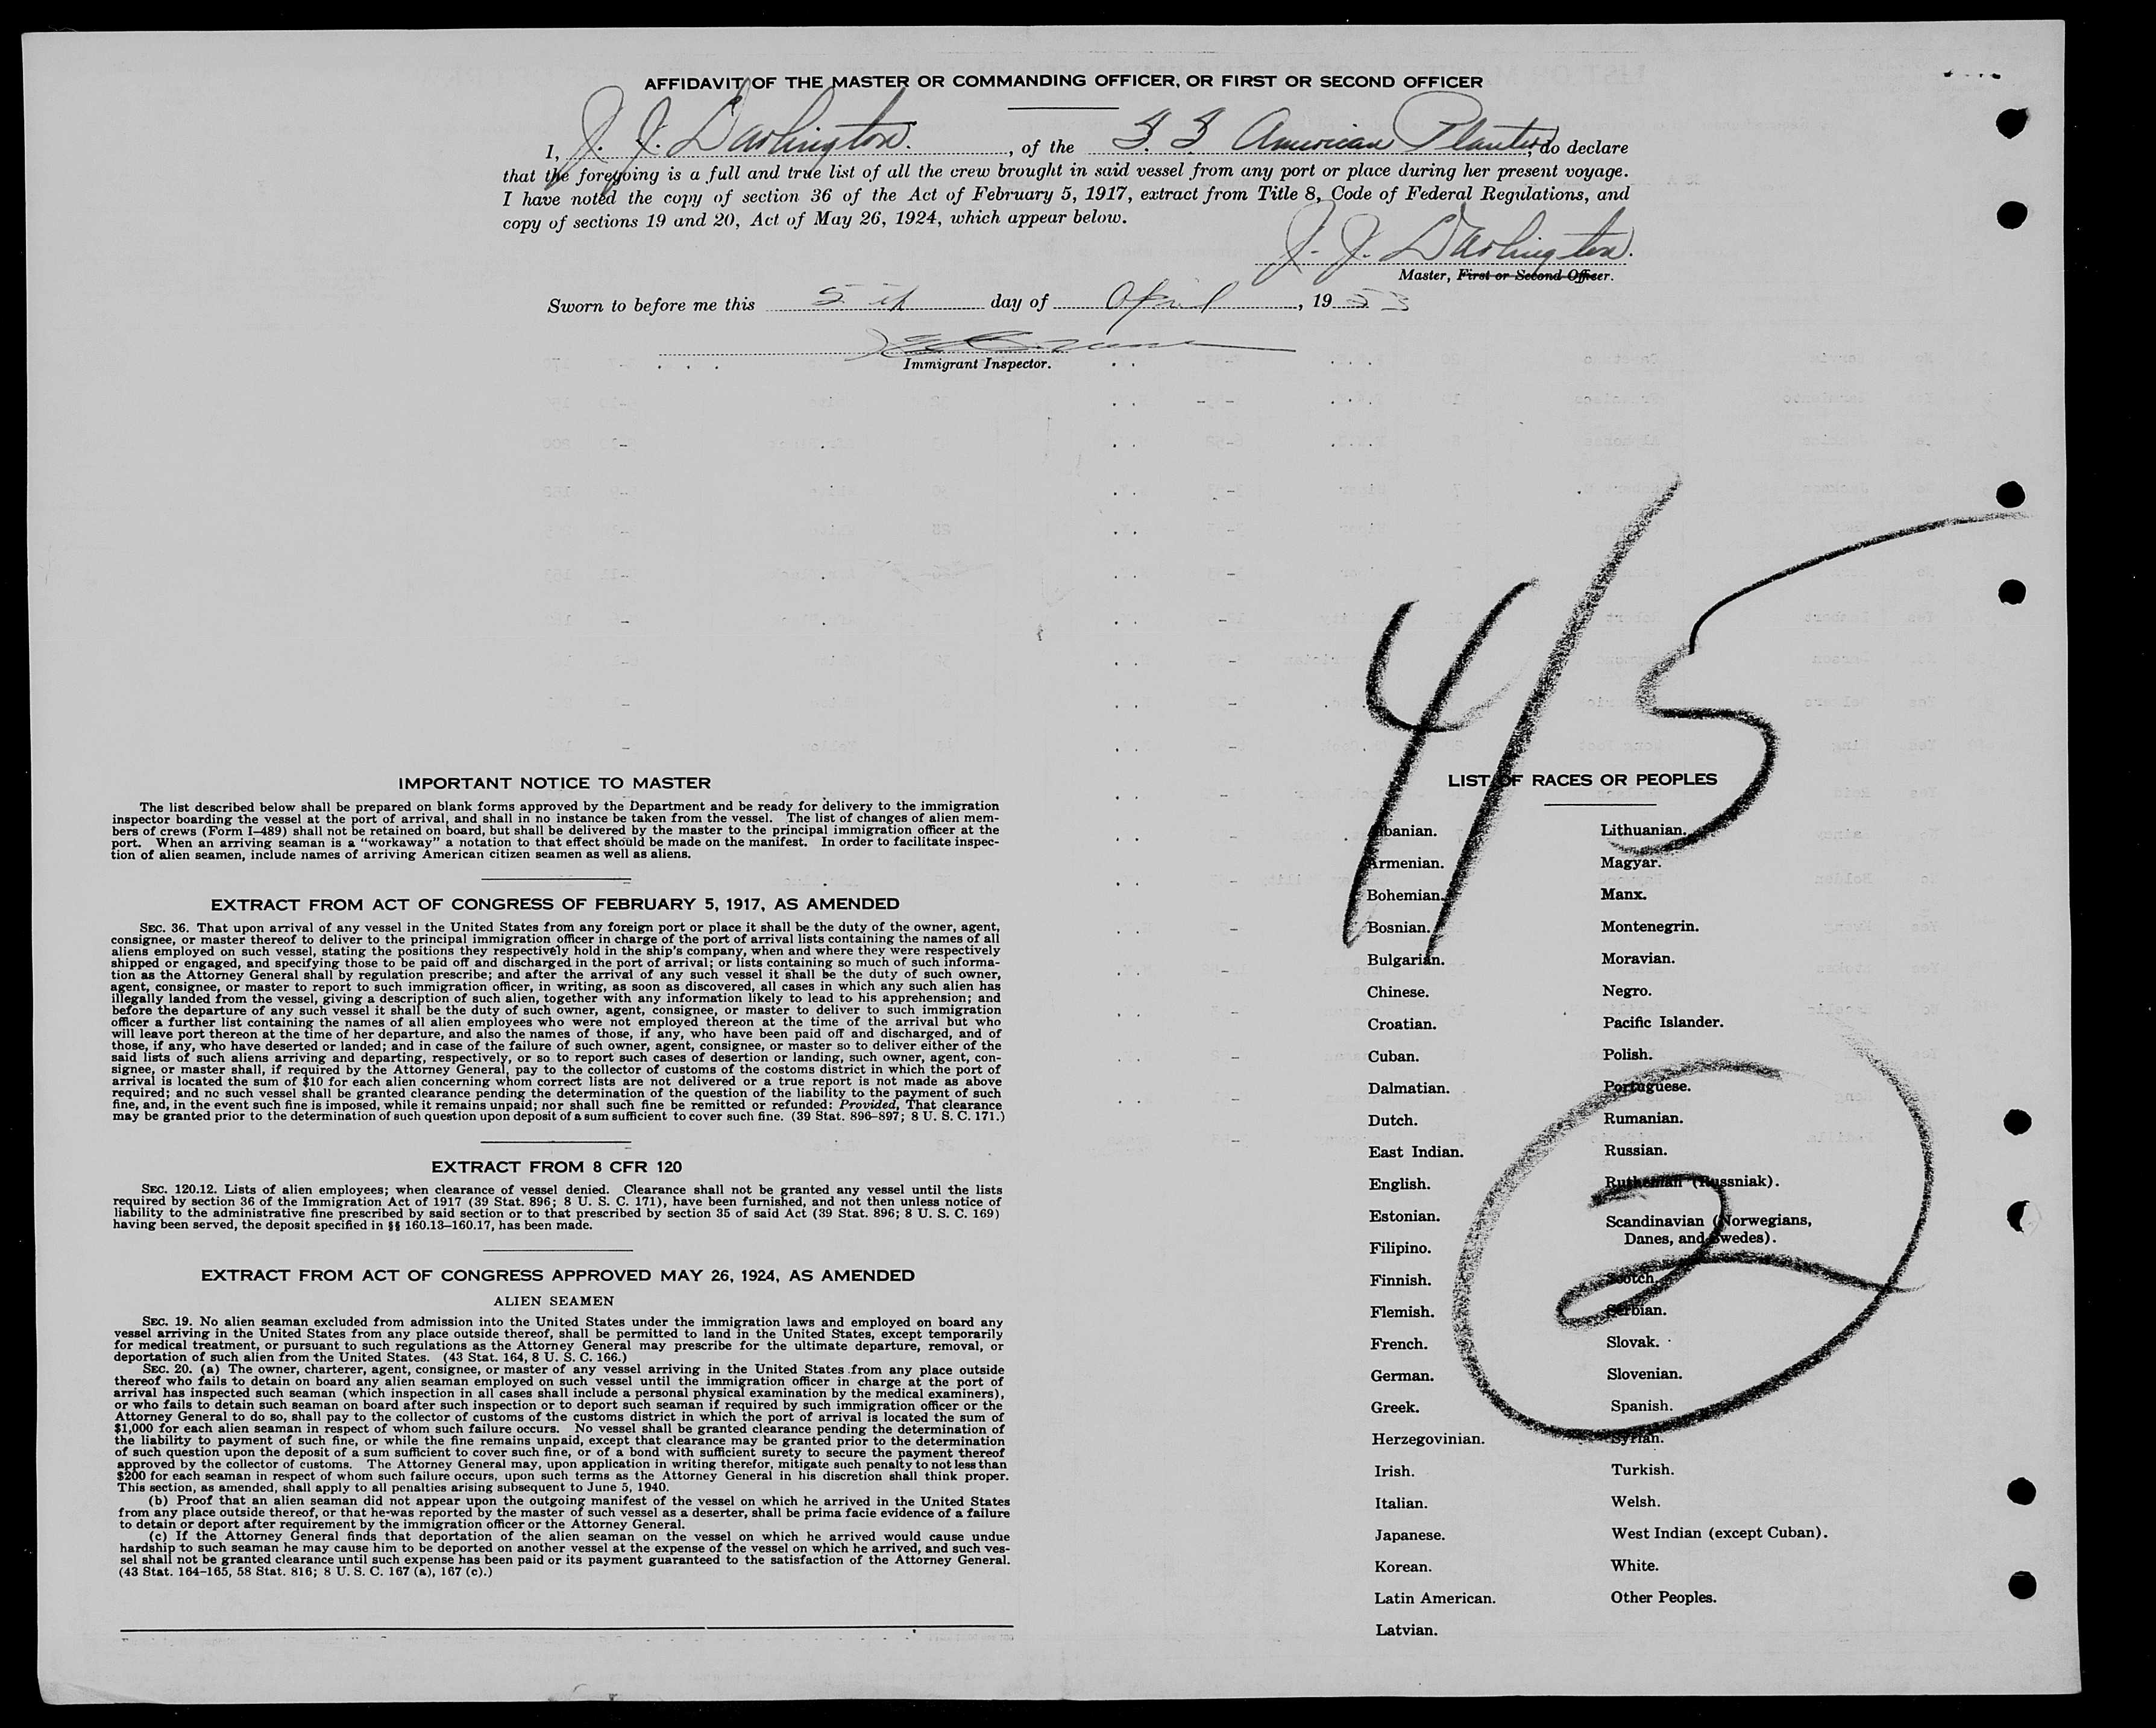 AFFIDAVIT OF THE MASTER OR COMMANDING OFFICER, OR FIRST OR SECOND OFFICER
I, J. J. Darlington., of the S. S. American Planter, do declare
that the foregoing is a full and true list of all the crew brought in said vessel from any port or place during her present voyage.
I have noted the copy of section 36 of the Act of February 5, 1917, extract from Title 8, Code of Federal Regulations, and
copy of sections 19 and 20, Act of May 26, 1924, which appear below.
J. J. Darlington.
Master, First or Second Officer.
Sworn to before me this 5th day of April, 1953
Immigrant Inspector.
4/5
IMPORTANT NOTICE TO MASTER
The list described below shall be prepared on blank forms approved by the Department and be ready for delivery to the immigration
inspector boarding the vessel at the port of arrival, and shall in no instance be taken from the vessel. The list of changes of alien mem-
bers of crews (Form I-489) shall not be retained on board, but shall be delivered by the master to the principal immigration officer at the
port. When an arriving seaman is a "workaway" a notation to that effect should be made on the manifest. In order to facilitate inspec-
tion of alien seamen, include names of arriving American citizen seamen as well as aliens.
EXTRACT FROM ACT OF CONGRESS OF FEBRUARY 5, 1917, AS AMENDED
SEC. 36. That upon arrival of any vessel in the United States from any foreign port or place it shall be the duty of the owner, agent,
consignee, or master thereof to deliver to the principal immigration officer in charge of the port of arrival lists containing the names of all
aliens employed on such vessel, stating the positions they respectively hold in the ship's company, when and where they were respectively
shipped or engaged, and specifying those to be paid off and discharged in the port of arrival; or lists containing so much of such informa-
tion as the Attorney General shall by regulation prescribe; and after the arrival of any such vessel it shall be the duty of such owner,
agent, consignee, or master to report to such immigration officer, in writing, as soon as discovered, all cases in which any such alien has
illegally landed from the vessel, giving a description of such alien, together with any information likely to lead to his apprehension; and
before the departure of any such vessel it shall be the duty of such owner, agent, consignee, or master to deliver to such immigration
officer a further list containing the names of all alien employees who were not employed thereon at the time of the arrival but who
will leave port thereon at the time of her departure, and also the names of those, if any, who have been paid off and discharged, and of
those, if any, who have deserted or landed; and in case of the failure of such owner, agent, consignee, or master so to deliver either of the
said lists of such aliens arriving and departing, respectively, or so to report such cases of desertion or landing, such owner, agent, con-
signee, or master shall, if required by the Attorney General, pay to the collector of customs of the costoms district in which the port of
arrival is located the sum of $10 for each alien concerning whom correct lists are not delivered or a true report is not made as above
required; and no such vessel shall be granted clearance pending the determination of the question of the liability to the payment of such
fine, and, in the event such fine is imposed, while it remains unpaid; nor shall such fine be remitted or refunded: Provided, That clearance
may be granted prior to the determination of such question upon deposit of a sum sufficient to cover such fine. (39 Stat. 896-897; 8 U. S. C. 171.)
EXTRACT FROM 8 CFR 120
SEC. 120.12. Lists of alien employees; when clearance of vessel denied. Clearance shall not be granted any vessel until the lists
required by section 36 of the Immigration Act of 1917 (39 Stat. 896; 8 U. S. C. 171), have been furnished, and not then unless notice of
liability to the administrative fine prescribed by said section or to that prescribed by section 35 of said Act (39 Stat. 896; 8 U. S. C. 169)
having been served, the deposit specified in §§ 160.13-160.17, has been made.
EXTRACT FROM ACT OF CONGRESS APPROVED MAY 26, 1924, AS AMENDED
ALIEN SEAMEN
SEC. 19. No alien seaman excluded from admission into the United States under the immigration laws and employed on board any
vessel arriving in the United States from any place outside thereof, shall be permitted to land in the United States, except temporarily
for medical treatment, or pursuant to such regulations as the Attorney General may prescribe for the ultimate departure, removal, or
deportation of such alien from the United States. (43 Stat. 164, 8 U. S. C. 166.)
SEC. 20. (a) The owner, charterer, agent, consignee, or master of any vessel arriving in the United States from any place outside
thereof who fails to detain on board any alien seaman employed on such vessel until the immigration officer in charge at the port of
arrival has inspected such seaman (which inspection in all cases shall include a personal physical examination by the medical examiners),
or who fails to detain such seaman on board after such inspection or to deport such seaman if required by such immigration officer or the
Attorney General to do so, shall pay to the collector of customs of the customs district in which the port of arrival is located the sum of
$1,000 for each alien seaman in respect of whom such failure occurs. No vessel shall be granted clearance pending the determination of
the liability to payment of such fine, or while the fine remains unpaid, except that clearance may be granted prior to the determination
of such question upon the deposit of a sum sufficient to cover such fine, or of a bond with sufficient surety to secure the payment thereof
approved by the collector of customs. The Attorney General may, upon application in writing therefor, mitigate such penalty to not less than
$200 for each seaman in respect of whom such failure occurs, upon such terms as the Attorney General in his discretion shall think proper.
This section, as amended, shall apply to all penalties arising subsequent to June 5, 1940.
(b) Proof that an alien seaman did not appear upon the outgoing manifest of the vessel on which he arrived in the United States
from any place outside thereof, or that he was reported by the master of such vessel as a deserter, shall be prima facie evidence of a failure
to detain or deport after requirement by the immigration officer or the Attorney General.
(c) If the Attorney General finds that deportation of the alien seaman on the vessel on which he arrived would cause undue
hardship to such seaman he may cause him to be deported on another vessel at the expense of the vessel on which he arrived, and such ves-
sel shall not be granted clearance until such expense has been paid or its payment guaranteed to the satisfaction of the Attorney General.
(43 Stat. 164-165, 58 Stat. 816; 8 U. S. C. 167 (a), 167 (c).)
LIST OF RACES OR PEOPLES
Albanian.
Armenian.
Bohemian.
Bosnian.
Bulgarian.
Chinese.
Croatian.
Cuban.
Dalmatian.
Dutch.
East Indian.
English.
Estonian.
Filipino.
Finnish.
Flemish.
French.
German.
Greek.
Herzegovinian.
Irish.
Italian.
Japanese.
Korean.
Latin American.
Latvian.
Lithuanian.
Magyar.
Manx.
Montenegrin.
Moravian.
Negro.
Pacific Islander.
Polish.
Portuguese.
Rumanian.
Russian.
Ruthenian (Russniak).
Scandinavian (Norwegians,
Danes, and Swedes).
Scotch.
Serbian.
Slovak.
Slovenian.
Spanish.
Syrian.
Turkish.
Welsh.
West Indian (except Cuban).
White.
Other Peoples.
2